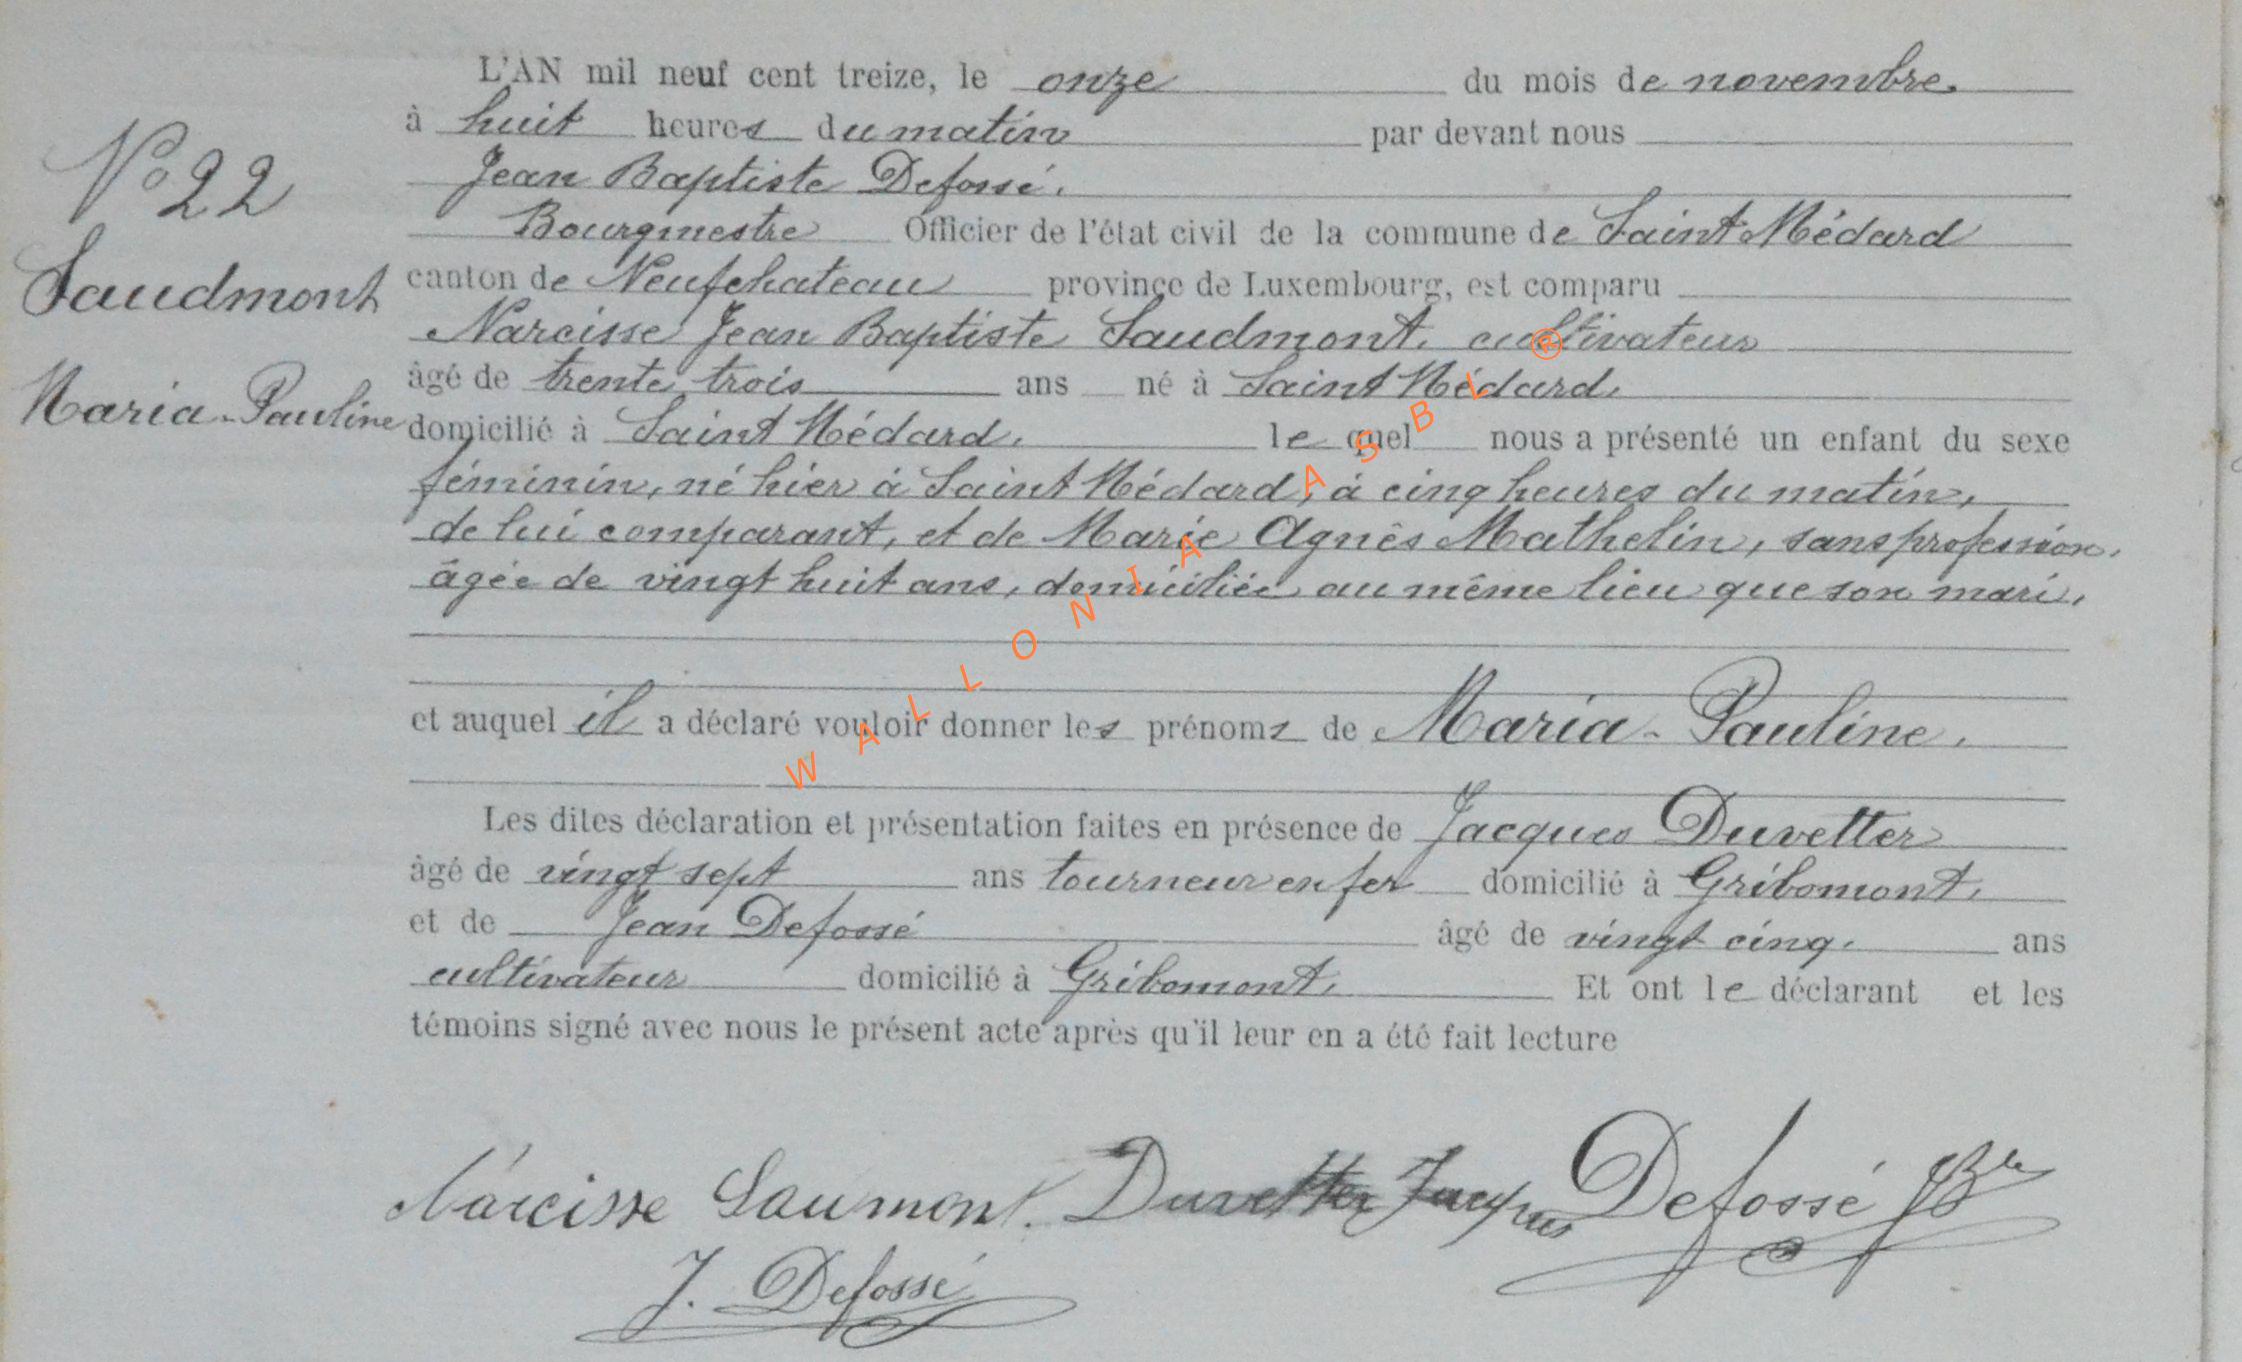 L'AN mil neuf cent treize, le onze du mois de novembre.
à huit heures du matin par devant nous
Jean Baptiste Defossé.
Bourgmestre Officier de l'état civil de la commune de Saint Médard
canton de Neufchateau province de Luxembourg, est comparu
Narcisse Jean Baptiste Saudmont, cultivateur
âgé de trente trois ans né à Saint Médard,
domicilié à Saint Médard, le quel nous a présenté un enfant du sexe
féminin, né hier à Saint Médard, à cinq heures du matin,
de lui comparant, et de Marie Agnès Mathelin, sans profession,
âgée de vingt huit ans, domiciliée au même lieu que son mari,
et auquel il a déclaré vouloir donner les prénoms de Maria-Pauline.
Les dites déclaration et présentation faites en présence de Jacques Duvetter
âgé de vingt sept ans tourneur en fer domicilié à Gribomont,
et de Jean Defossé âgé de vingt cinq. ans
cultivateur domicilié à Gribomont, Et ont le déclarant et les
témoins signé avec nous le présent acte après qu'il leur en a été fait lecture
N° 22
Saudmont
Maria-Pauline
Narcisse Saumont. Duvetter Jacques Defossé JBte
J. Defossé
WALLONIA ASBL ®